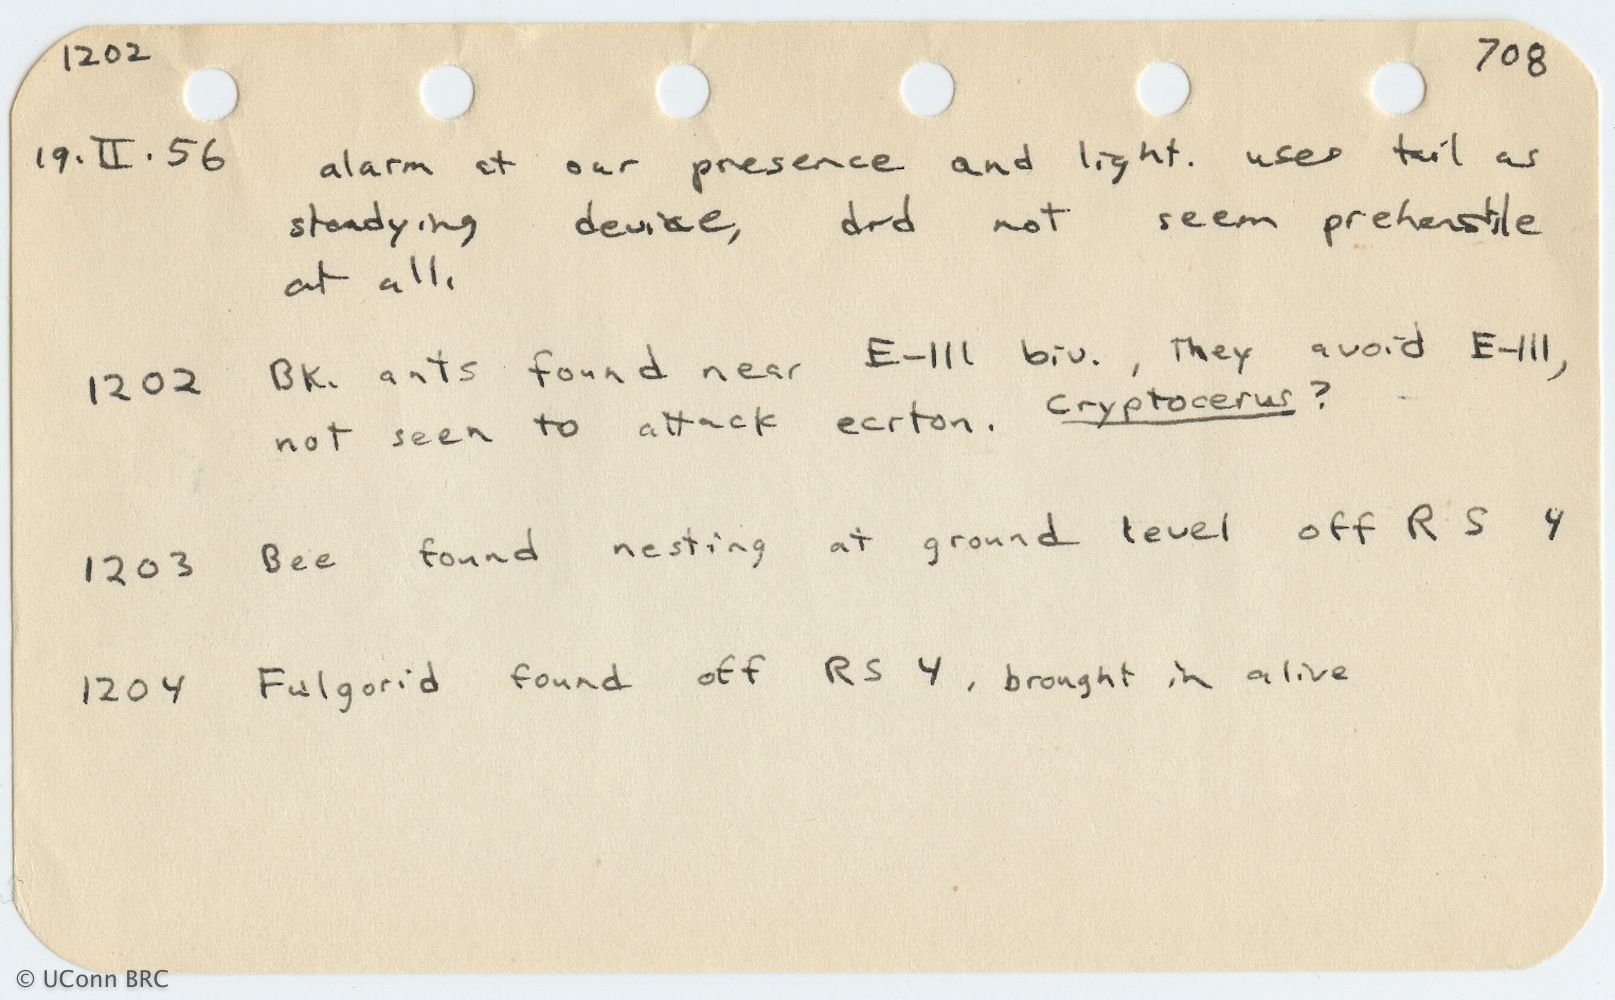 1202 708
19.II.56 alarm at our presence and light. uses tail as
steadying device, did not seem prehenstile
at all.
1202 Bk. ants found near E-III biv., They avoid E-III,
not seen to attack ecrton. Cryptocerus?
1203 Bee found nesting at ground level off RS 4
1204 Fulgorid found off RS 4, brought in alive
© UConn BRC